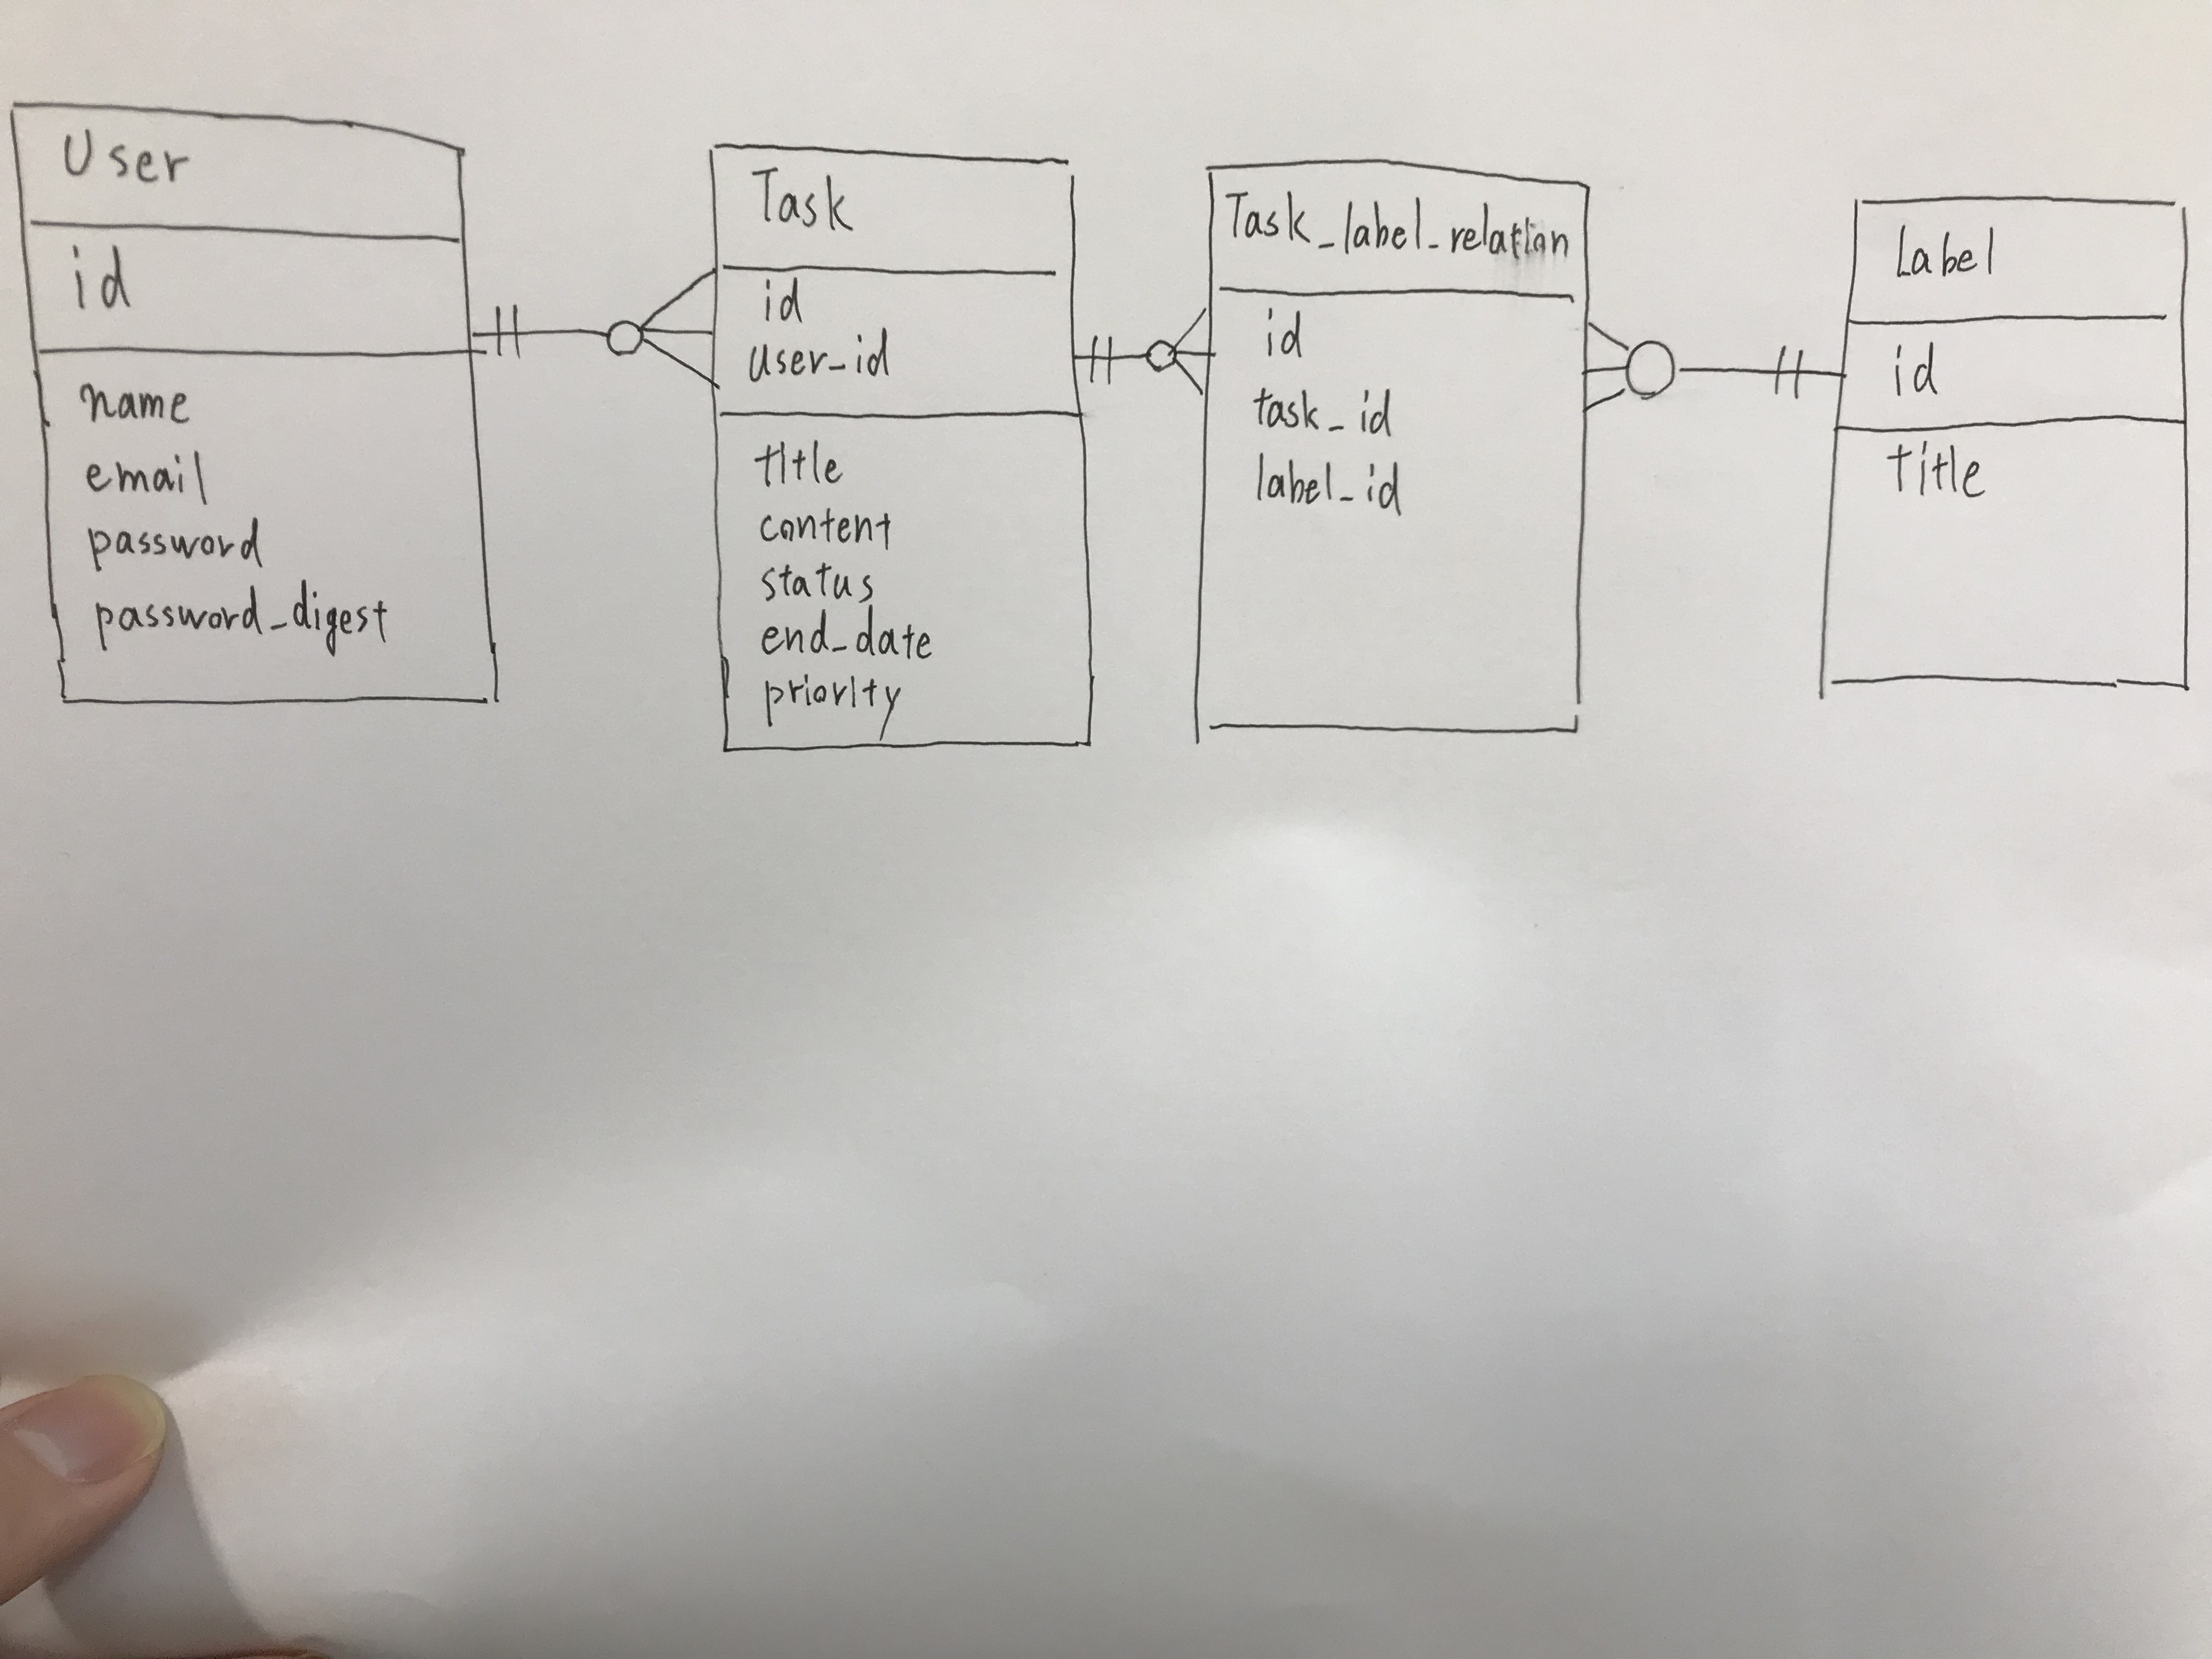 User
id
name
email
password
password_digest
Task
id
user_id
title
content
status
end_date
priority
Task_label_relation
id
task_id
label_id
Label
id
title